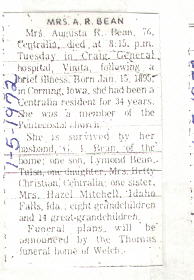 MRS. A. R. BEAN
Mrs. Augusta R. Bean, 76,
Centralia, died at 8:15 p.m.
Tuesday in Craig General
hospital, Vinita, following a
brief illness. Born Jan. 15, 1895,
in Corning, Iowa, she had been a
Centralia resident for 34 years.
She was a member of the
Pentecostal church.
She is survived by her
husband, G. I. Bean, of the
home; one son, Lymond Bean,
Tulsa, one daughter, Mrs. Hetty
Christian, Centralia; one sister,
Mrs. Hazel Mitchell, Idaho
Falls, Ida., eight grandchildren
and 14 great-grandchildren.
Funeral plans, will be
announced by the Thomas
funeral home of Welch.
1-5-1972